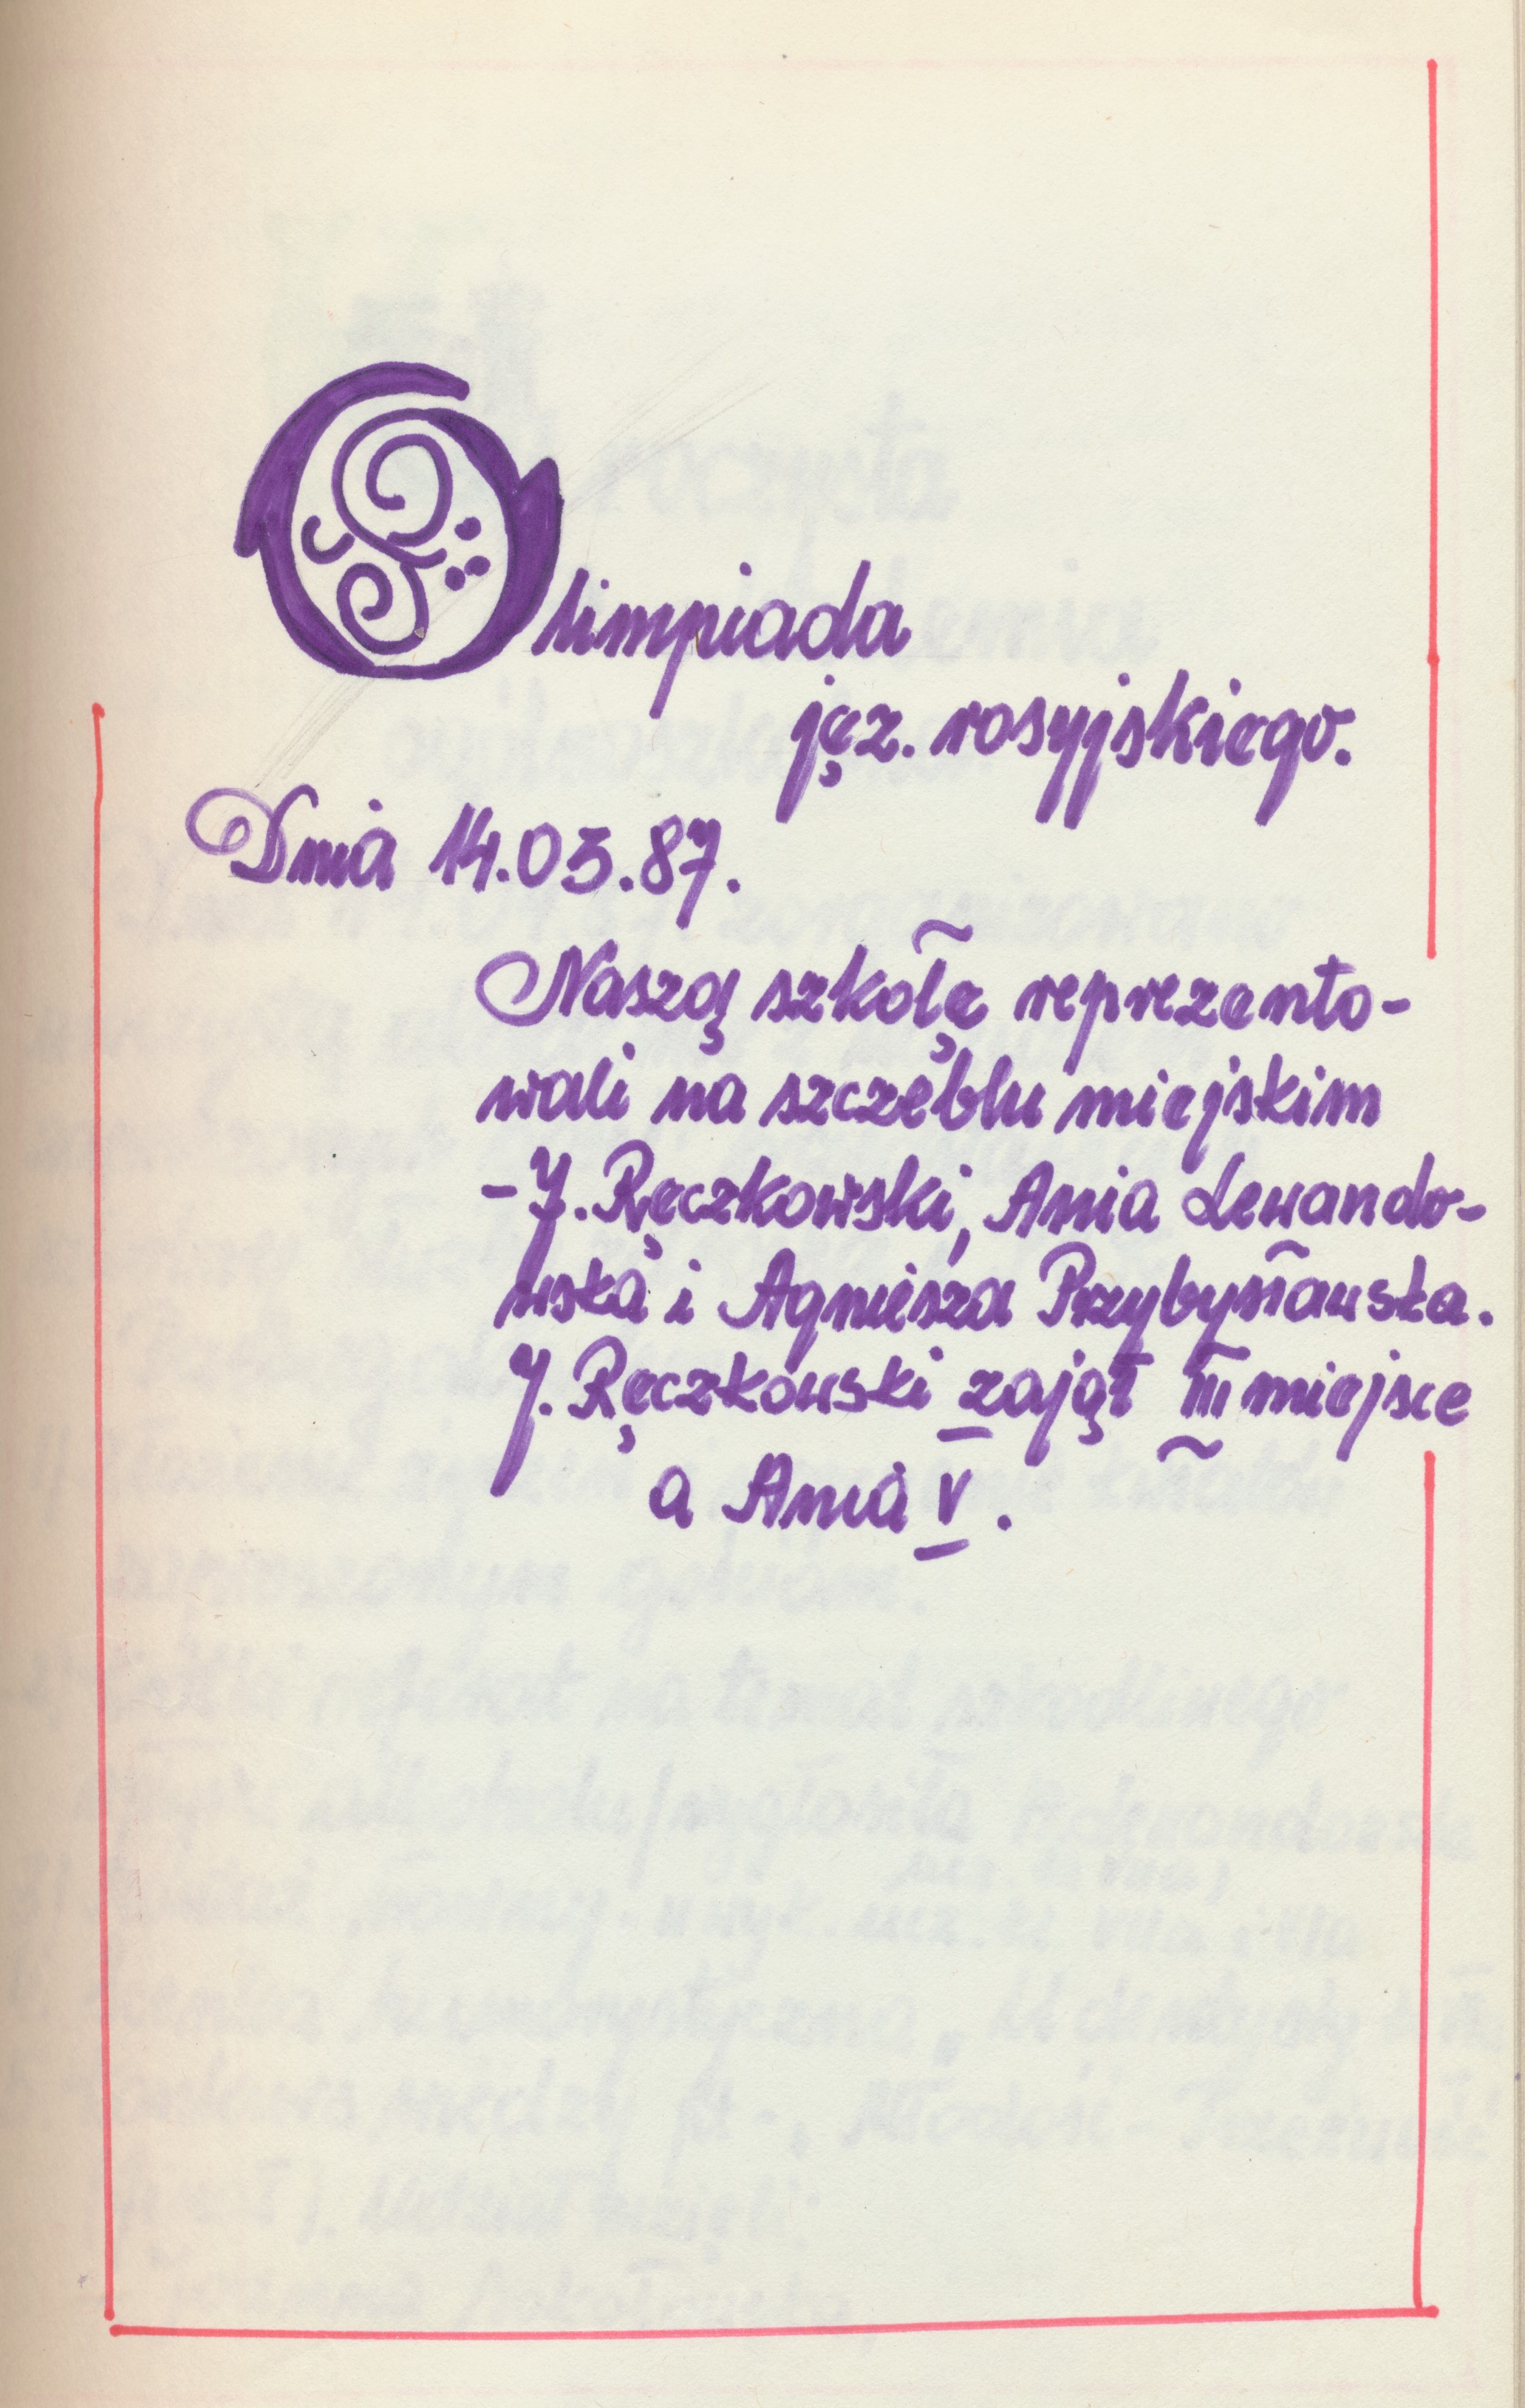 Olimpiada
jęz. rosyjskiego.
Dnia 14.03.87.
Naszą szkołę reprezento-
wali na szczeblu miejskim
- J. Ręczkowski, Ania Lewando-
wska i Agniesza Przybysławska.
J. Ręczkowski zajął III miejsce
a Ania V.